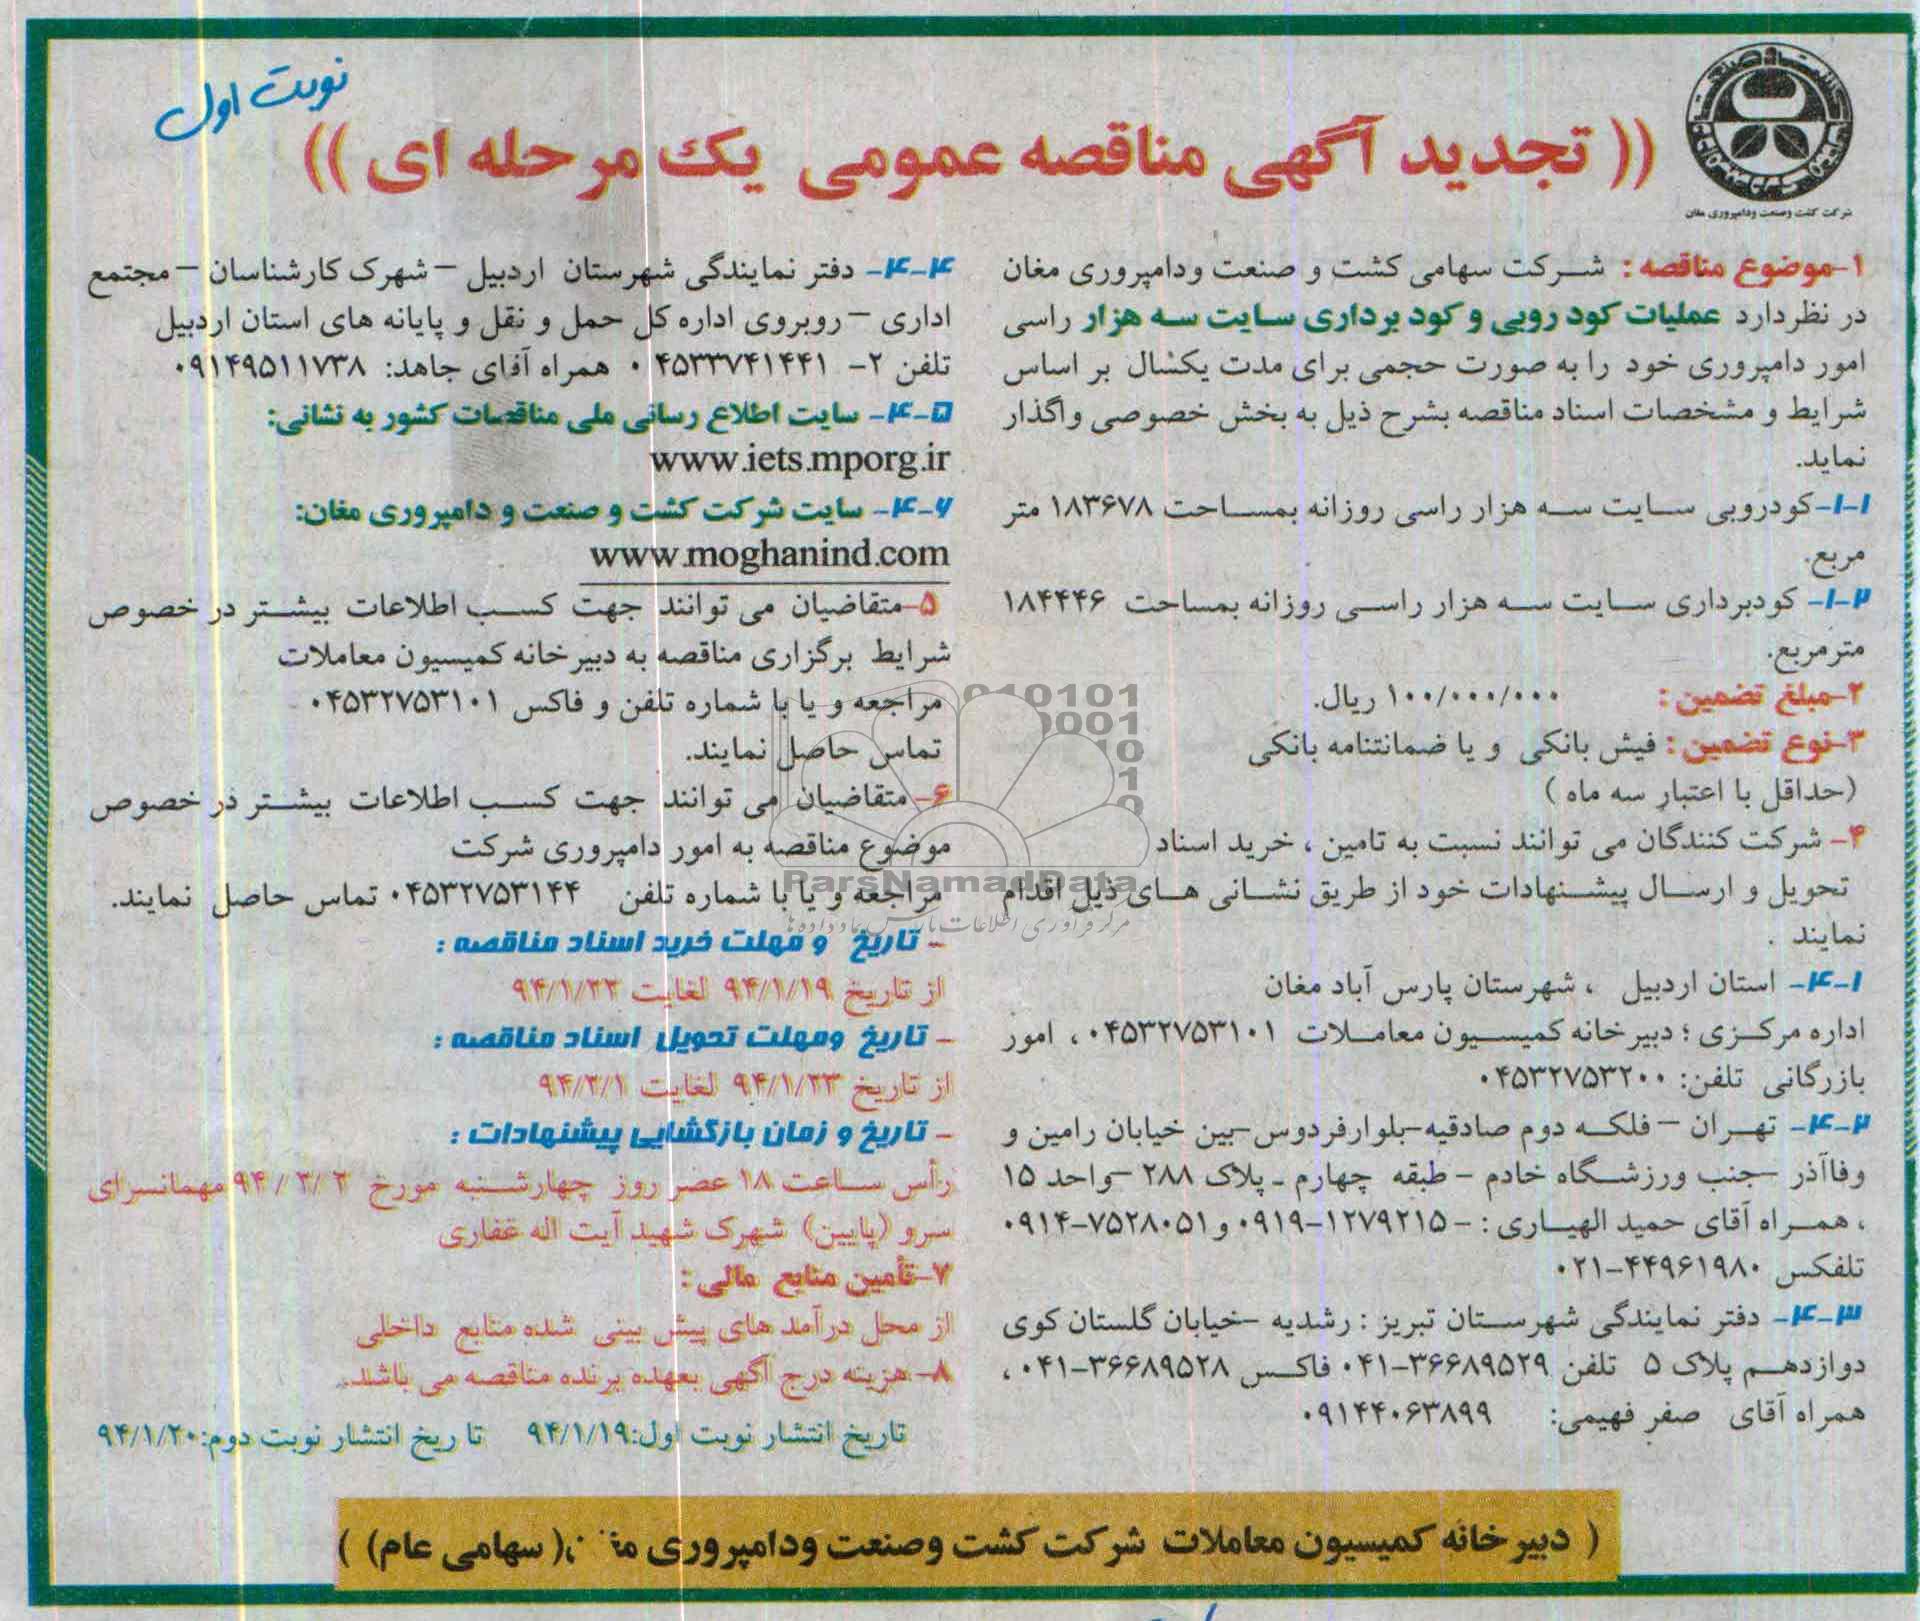 نوبت اول
(( تجدید آگهی مناقصه عمومی یک مرحله ای ))
شرکت کشت وصنعت ودامپروری مغان
۱-موضوع مناقصه : شرکت سهامی کشت و صنعت ودامپروری مغان
در نظردارد عملیات کود روبی و کود برداری سایت سه هزار راسی
امور دامپروری خود را به صورت حجمی برای مدت یکسال بر اساس
شرایط و مشخصات اسناد مناقصه بشرح ذیل به بخش خصوصی واگذار
نماید.
۱-۱-کودروبی سایت سه هزار راسی روزانه بمساحت ۱۸۳۶۷۸ متر
مربع.
۱-۲- کودبرداری سایت سه هزار راسی روزانه بمساحت ۱۸۴۴۴۶
مترمربع.
۲-مبلغ تضمین : ۱۰۰/۰۰۰/۰۰۰ ریال.
۳-نوع تضمین : فیش بانکی و یا ضمانتنامه بانکی
(حداقل با اعتبار سه ماه )
۴- شرکت کنندگان می توانند نسبت به تامین ، خرید اسناد
تحویل و ارسال پیشنهادات خود از طریق نشانی های ذیل اقدام
نمایند .
۴-۱- استان اردبیل ، شهرستان پارس آباد مغان
اداره مرکزی ؛ دبیرخانه کمیسیون معاملات ۰۴۵۳۲۷۵۳۱۰۱ ، امور
بازرگانی تلفن: ۰۴۵۳۲۷۵۳۲۰۰
۴-۲- تهران – فلکه دوم صادقیه-بلوارفردوس-بین خیابان رامین و
وفاآذر -جنب ورزشگاه خادم - طبقه چهارم - پلاک ۲۸۸ -واحد ۱۵
، همراه آقای حمید الهیاری : - ۱۲۷۹۲۱۵-۰۹۱۹ و ۷۵۲۸۰۵۱-۰۹۱۴
تلفکس ۴۴۹۶۱۹۸۰-۰۲۱
۴-۳- دفتر نمایندگی شهرستان تبریز : رشدیه -خیابان گلستان کوی
دوازدهم پلاک ۵ تلفن ۳۶۶۸۹۵۲۹-۰۴۱ فاکس ۳۶۶۸۹۵۲۸-۰۴۱ ،
همراه آقای صفر فهیمی: ۰۹۱۴۴۰۶۳۸۹۹
۴-۴- دفتر نمایندگی شهرستان اردبیل – شهرک کارشناسان – مجتمع
اداری – روبروی اداره کل حمل و نقل و پایانه های استان اردبیل
تلفن ۲- ۰۴۵۳۳۷۴۱۴۴۱ همراه آقای جاهد: ۰۹۱۴۹۵۱۱۷۳۸
۴-۵- سایت اطلاع رسانی ملی مناقصات کشور به نشانی:
www.iets.mporg.ir
۴-۶- سایت شرکت کشت و صنعت و دامپروری مغان:
www.moghanind.com
۵-متقاضیان می توانند جهت کسب اطلاعات بیشتر در خصوص
شرایط برگزاری مناقصه به دبیرخانه کمیسیون معاملات
مراجعه و یا با شماره تلفن و فاکس ۰۴۵۳۲۷۵۳۱۰۱
تماس حاصل نمایند.
۶- متقاضیان می توانند جهت کسب اطلاعات بیشتر در خصوص
موضوع مناقصه به امور دامپروری شرکت
مراجعه و یا با شماره تلفن ۰۴۵۳۲۷۵۳۱۴۴ تماس حاصل نمایند.
- تاریخ و مهلت خرید اسناد مناقصه :
از تاریخ ۹۴/۱/۱۹ لغایت ۹۴/۱/۲۲
- تاریخ ومهلت تحویل اسناد مناقصه :
از تاریخ ۹۴/۱/۲۳ لغایت ۹۴/۲/۱
- تاریخ و زمان بازگشایی پیشنهادات :
رأس ساعت ۱۸ عصر روز چهارشنبه مورخ ۹۴/۲/۲ مهمانسرای
سرو (پایین) شهرک شهید آیت اله غفاری
۷-تأمین منابع مالی :
از محل درآمد های پیش بینی شده منابع داخلی
۸- هزینه درج آگهی بعهده برنده مناقصه می باشد.
تاریخ انتشار نوبت اول:۹۴/۱/۱۹ تا ریخ انتشار نوبت دوم:۹۴/۱/۲۰
( دبیرخانه کمیسیون معاملات شرکت کشت وصنعت ودامپروری ( سهامی عام) )
ParsNamadData
مرکز فرآوری اطلاعات پارس نماد داده ها